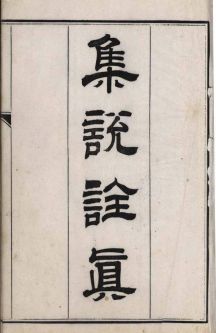 集說詮眞